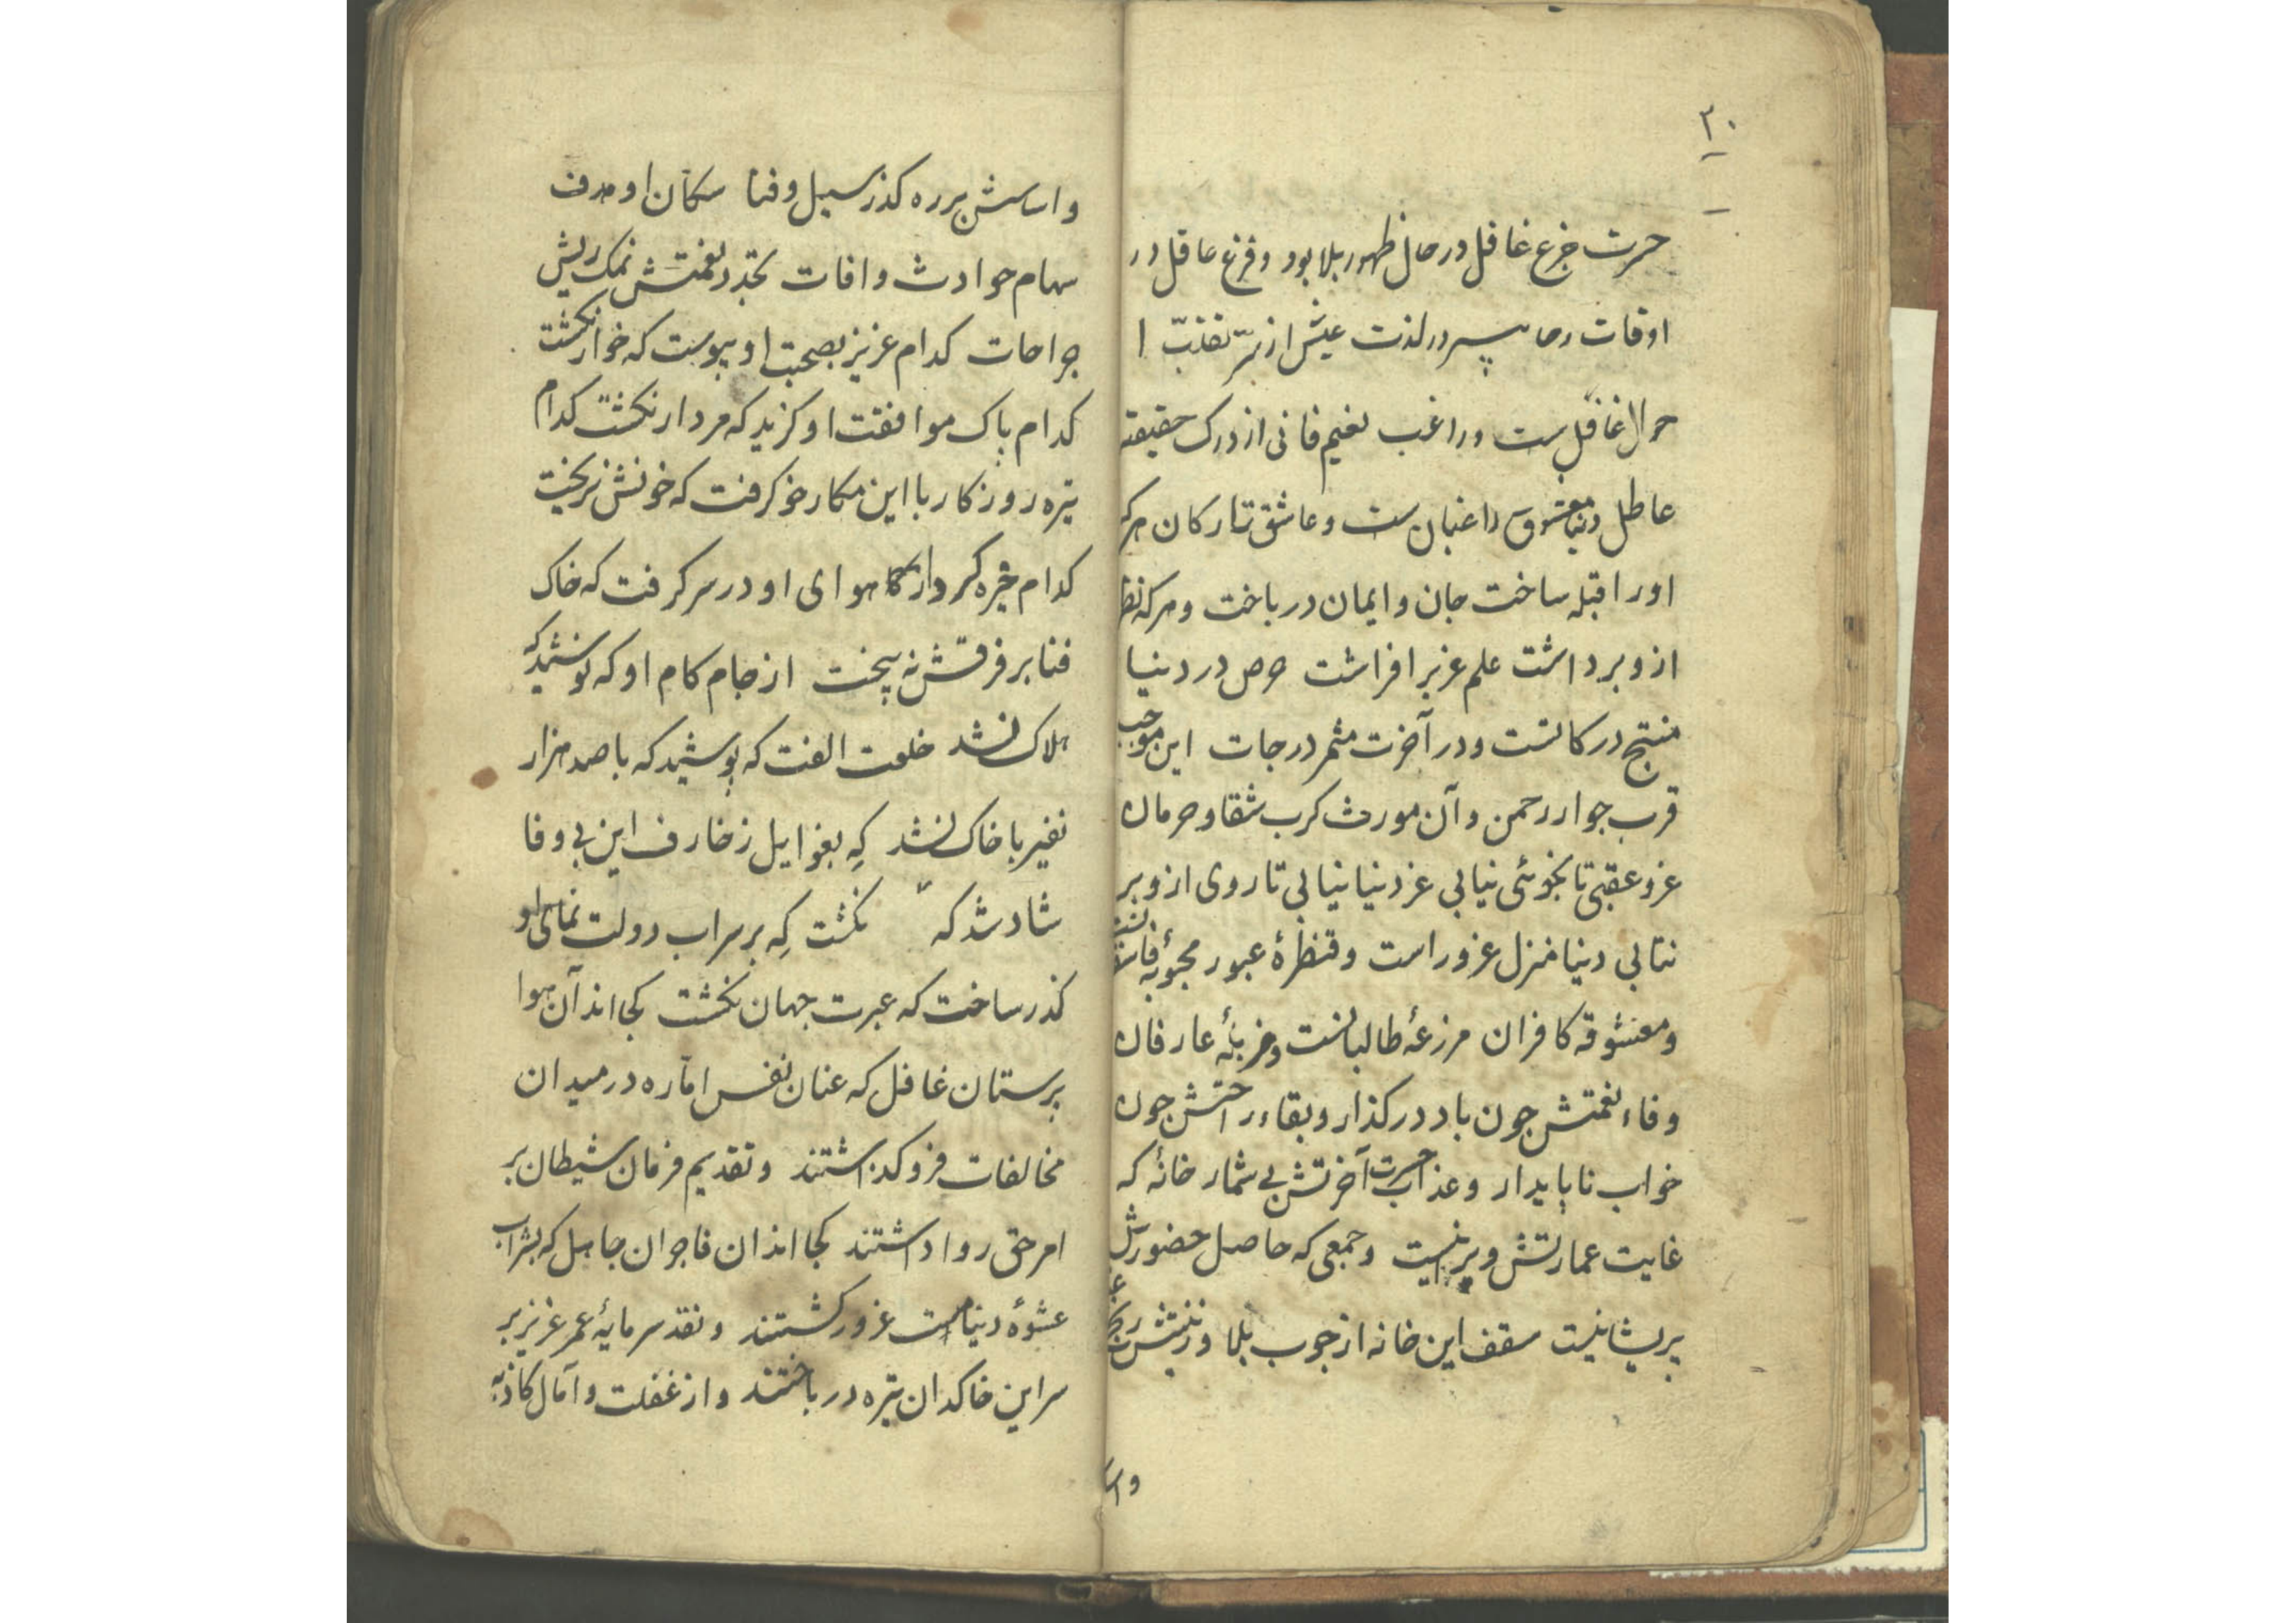 ۳۰
حسرت جزع غافل در حال ظهور بلا بود و فزع عاقل در
اوقات رخا سرور لذت عیش از سّر تقلّب ا
حوال غافل ست و راغب نعیم فانی از درک حقیقته
عاطل دنیا معشوق راغبان ست و عاشق تارکان هرکه
او را قبله ساخت جان و ایمان در باخت و هرکه نظر
ازو برداشت علم عز بر افراشت حرص در دنیا
منتج درکاتست و در آخرت مثمر درجات این موجب
قرب جوار رحمن و آن مورث کرب شقا و حرمان
عز و عقبی تا نجوئی نیابی عز دنیا نیابی تا روی ازو بر
نتابی دنیا منزل غرور است و قنطرهٔ عبور محبوبهٔ فاسقانست
و معشوقه کافران مزرعهٔ طالبانست و مزبلهٔ عارفان
وفاء نعمتش جون باد در کذار و بقاء راحتش جون
خواب ناپایدار و عذاب حسرت آخرتش بی شمار خانهٔ که
غایت عمارتش ویرانیست و جمعی که حاصل حضورش
پریشانیست سقف این خانه از جوب بلا و زینتش
واسا
و اساسش بر ره کذر سیل و فنا سکان او هدف
سهام حوادث و افات تجدد نعمتش نمک ریش
جراحات کدام عزیز بصحبت او پیوست که خوار نکشت
کدام پاک موافقت او کزید که مردار نکشت کدام
تیره روزکار با این مکار خو کرفت که خونش نریخت
کدام خیره کردار کاه هوای او در سر کرفت که خاک
فنا بر فرقش نه بیخت از جام کام او که نوشید که
هلاک نشد خلعت الفت که پوشید که با صد هزار
نفیر با خاک نشد کِه بغوایل زخارف این بی وفا
شاد شد که نکشت کِه بر سراب دولت نمای او
کذر ساخت که عبرت جهان نکشت کجا اند آن هوا
پرستان غافل که عنان نفس امّاره در میدان
مخالفات فرو کذاشتند و تقدیم فرمان شیطان بر
امر حق روا داشتند کجا اند ان فاجران جاهل که بشراب
عشوهٔ دنیا مست غرور کشتند و نقد سرمایهٔ عمر عزیز بر
سر این خاکدان تیره در باختند و از غفلت و آمال کاذبه